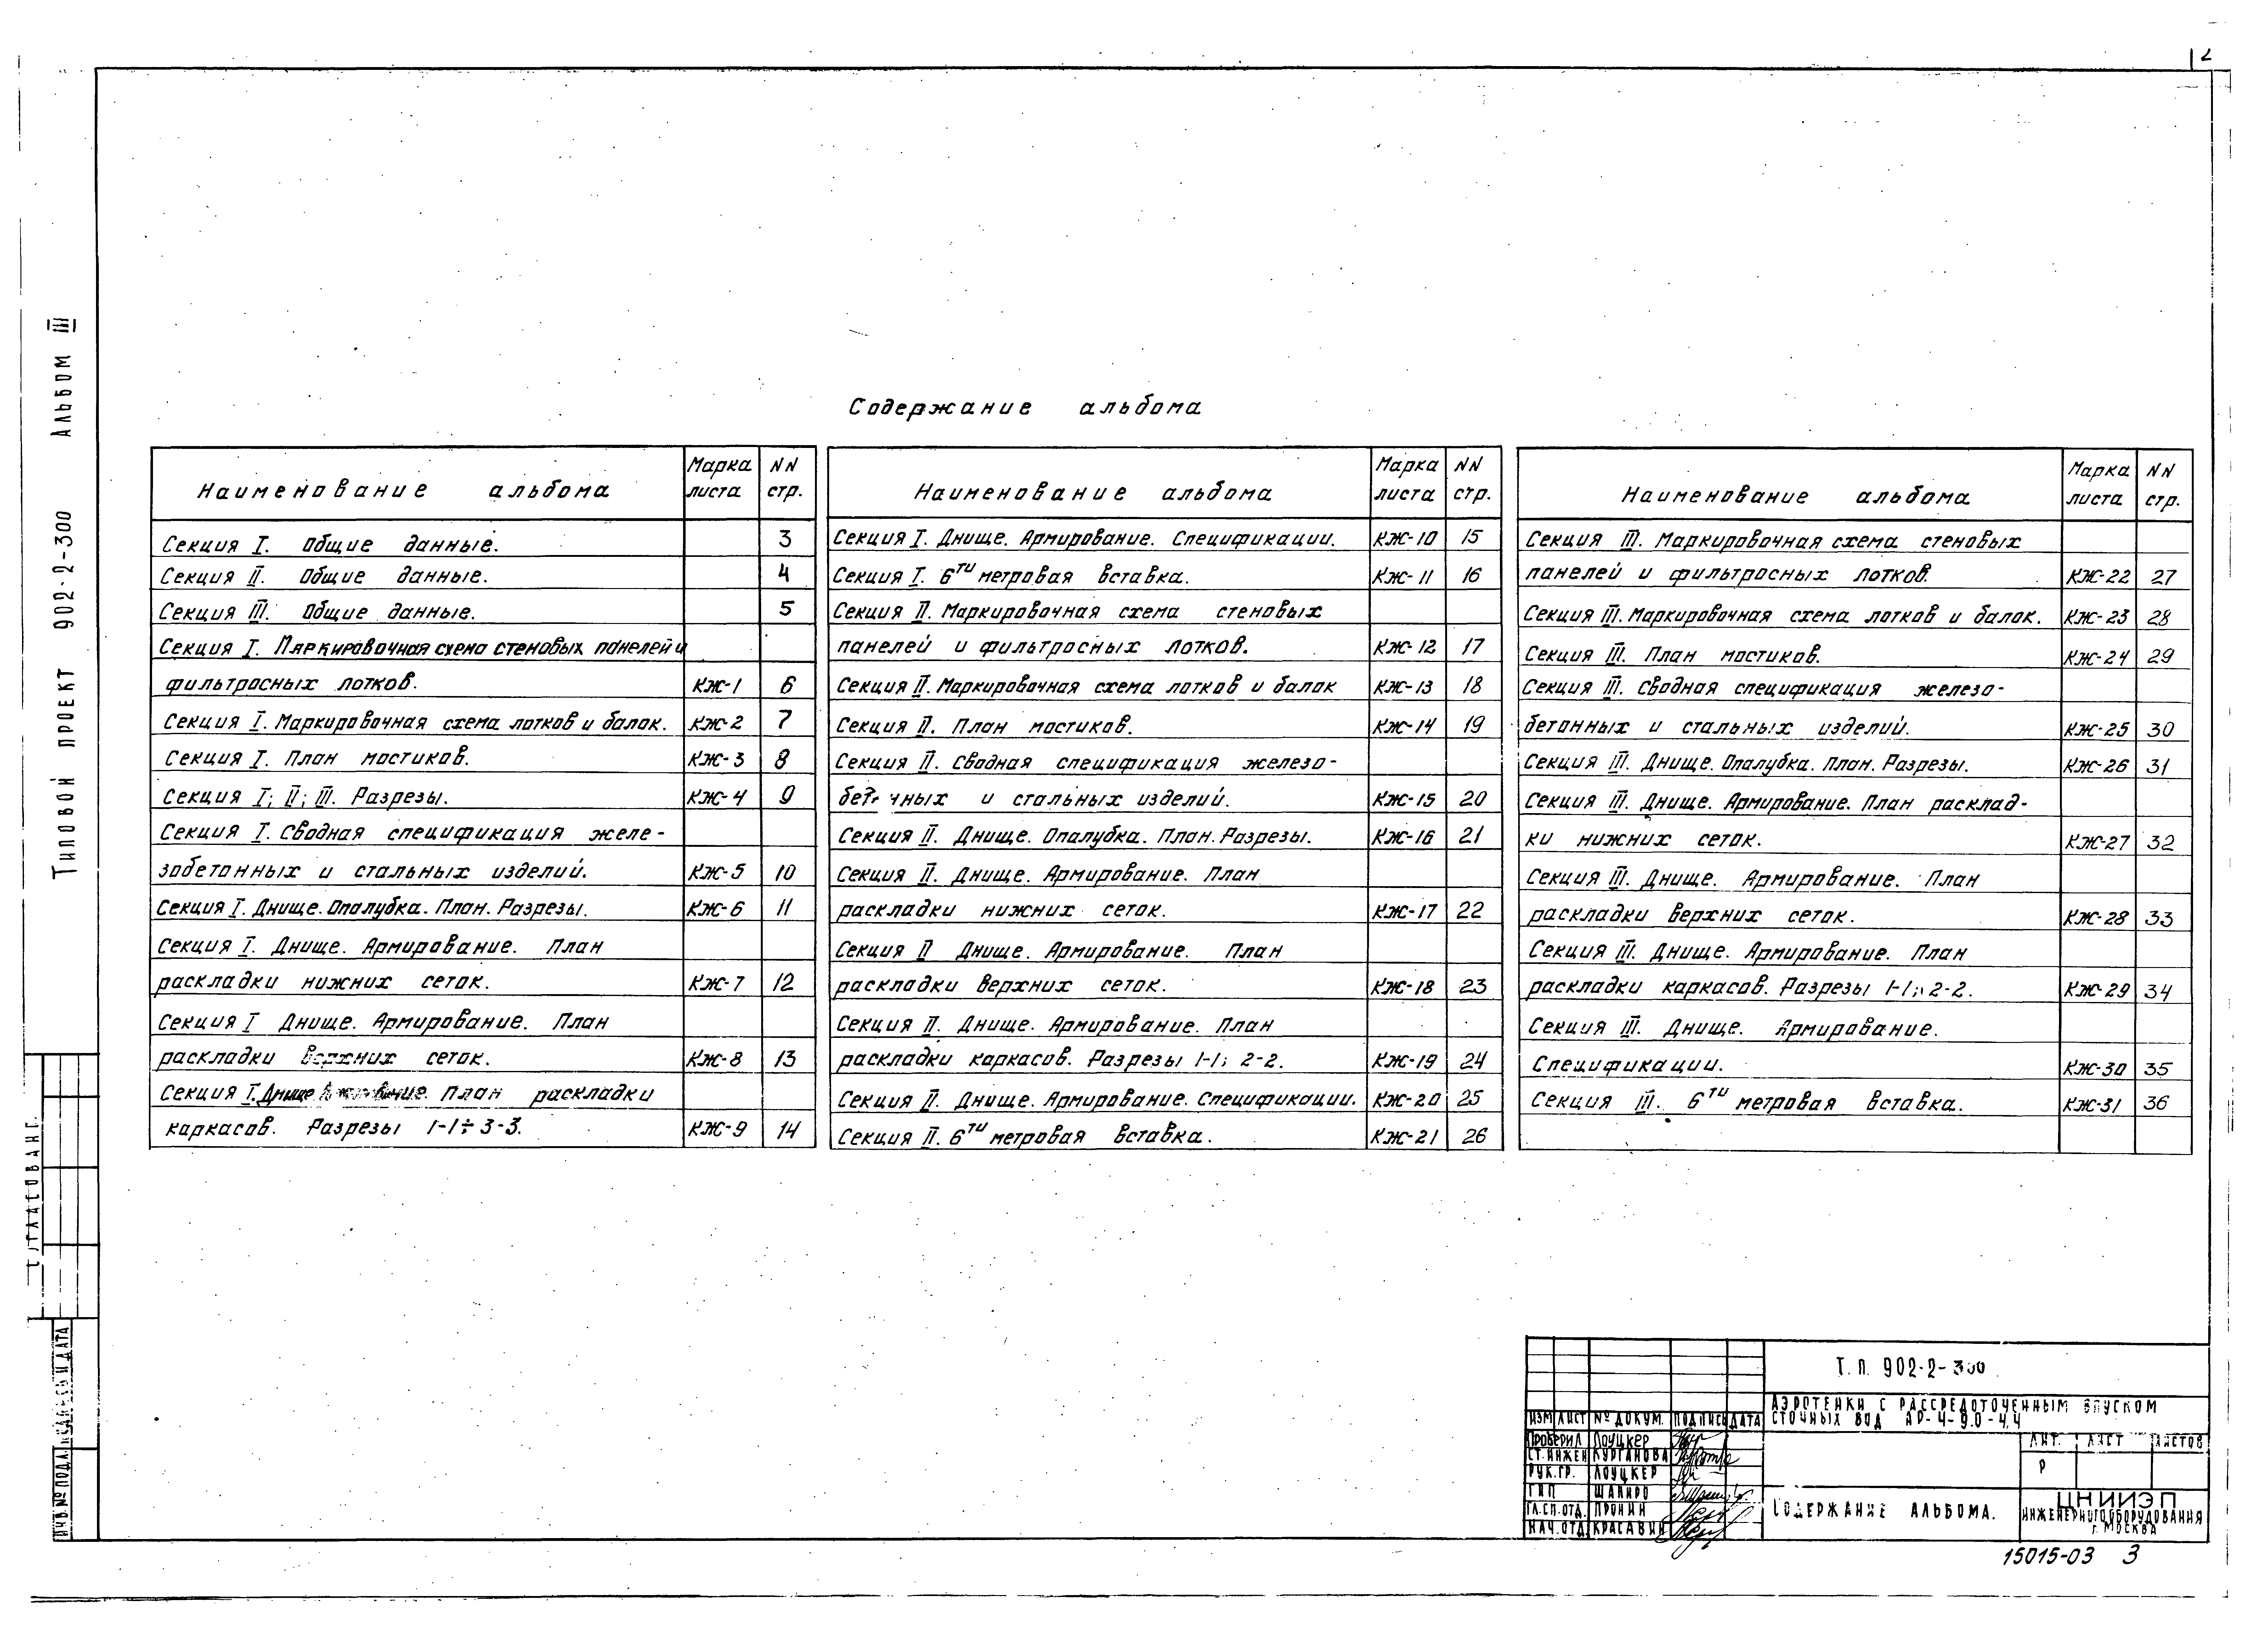 2
Типовой проект 902-2-300 Альбом III
Содержание альбома
Наименование альбома Марка листа NN стр.
Секция I. Общие данные. 3
Секция II. Общие данные. 4
Секция III. Общие данные. 5
Секция I. Маркировочная схема стеновых панелей и
фильтросных лотков. КЖ-1 6
Секция I. Маркировочная схема лотков и балок. КЖ-2 7
Секция I. План мостиков. КЖ-3 8
Секция I; II; III. Разрезы. КЖ-4 9
Секция I. Сводная спецификация желе-
зобетонных и стальных изделий. КЖ-5 10
Секция I. Днище. Опалубка. План. Разрезы. КЖ-6 11
Секция I. Днище. Армирование. План
раскладки нижних сеток. КЖ-7 12
Секция I Днище. Армирование. План
раскладки верхних сеток. КЖ-8 13
Секция I. Днище Армирование. План раскладки
каркасов. Разрезы 1-1÷3-3. КЖ-9 14
Наименование альбома Марка листа NN стр.
Секция I. Днище. Армирование. Спецификации. КЖ-10 15
Секция I. 6ти метровая вставка. КЖ-11 16
Секция II. Маркировочная схема стеновых
панелей и фильтросных лотков. КЖ-12 17
Секция II. Маркировочная схема лотков и балок КЖ-13 18
Секция II. План мостиков. КЖ-14 19
Секция II. Сводная спецификация железо-
бет чных и стальных изделий. КЖ-15 20
Секция II. Днище. Опалубка. План. Разрезы. КЖ-16 21
Секция II. Днище. Армирование. План
раскладки нижних сеток. КЖ-17 22
Секция II Днище. Армирование. План
раскладки верхних сеток. КЖ-18 23
Секция II. Днище. Армирование. План
раскладки каркасов. Разрезы 1-1; 2-2. КЖ-19 24
Секция II. Днище. Армирование. Спецификации. КЖ-20 25
Секция II. 6ти метровая вставка. КЖ-21 26
Наименование альбома Марка листа NN стр.
Секция III. Маркировочная схема стеновых
панелей и фильтросных лотков. КЖ-22 27
Секция III. Маркировочная схема лотков и балок. КЖ-23 28
Секция III. План мостиков. КЖ-24 29
Секция III. Сводная спецификация железо-
бетонных и стальных изделий. КЖ-25 30
Секция III. Днище. Опалубка. План. Разрезы. КЖ-26 31
Секция III. Днище. Армирование. План расклад-
ки нижних сеток. КЖ-27 32
Секция III. Днище. Армирование. План
раскладки верхних сеток. КЖ-28 33
Секция III. Днище. Армирование. План
раскладки каркасов. Разрезы 1-1; 2-2. КЖ-29 34
Секция III. Днище. Армирование.
Спецификации. КЖ-30 35
Секция III. 6ти метровая вставка. КЖ-31 36
Согласовант.
Инв.№ подл. Подпись и дата
Т. п. 902-2-300
Аэротенки с рассредоточенным впуском
сточных вод АР-4-9.0-4,4
Изм Лист № докум. Подпись Дата
Проверил Лоуцкер
Ст.инжен Курганова
Рук.гр. Лоуцкер
ГИП Шапиро
Гл.сп.отд. Пронин
Нач.отд Красавин
Лит. Лист Листов
Р
Содержание альбома.
ЦНИИЭП
инженерного оборудования
г. Москва
15015-03 3